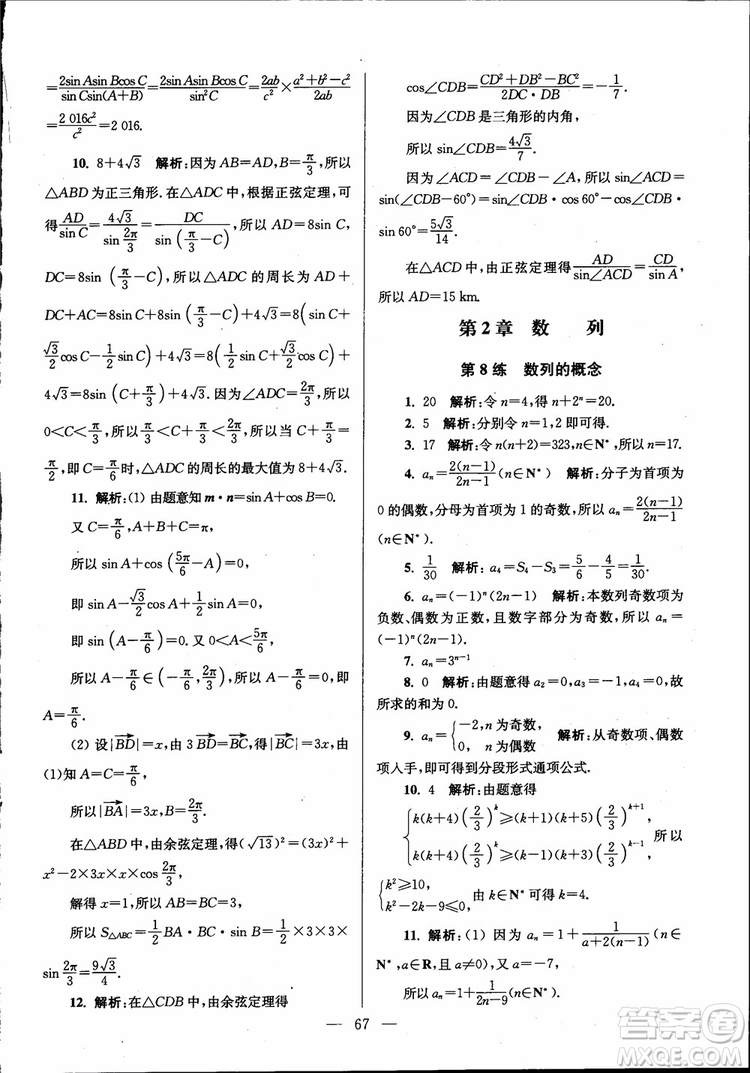 =2sin Asin Bcos C/sin Csin(A+B)=2sin Asin Bcos C/sin²C=2ab/c²×(a²+b²-c²)/2ab
=2 016c²/c²=2 016.
10. 8+4√3 解析:因为 AB=AD,B=π/3,所以
△ABD 为正三角形.在△ADC 中,根据正弦定理,可
得 AD/sin C=4√3/sin 2π/3=DC/sin(π/3-C),所以 AD=8sin C,
DC=8sin(π/3-C).所以△ADC 的周长为 AD+
DC+AC=8sin C+8sin(π/3-C)+4√3=8(sin C+
√3/2 cos C-1/2 sin C)+4√3=8(1/2 sin C+√3/2 cos C)+
4√3=8sin(C+π/3)+4√3.因为∠ADC=2π/3,所以
0<C<π/3,所以π/3<C+π/3<2π/3,所以当 C+π/3=
π/2,即 C=π/6时,△ADC 的周长的最大值为 8+4√3.
11. 解析:(1) 由题意知 m·n=sin A+cos B=0.
又 C=π/6,A+B+C=π,
所以 sin A+cos(5π/6-A)=0,
即 sin A-√3/2 cos A+1/2 sin A=0,
即 sin(A-π/6)=0.又 0<A<5π/6,
所以 A-π/6∈(-π/6,2π/3),所以 A-π/6=0,即
A=π/6.
(2) 设|BD|=x,由 3BD=BC,得|BC|=3x,由
(1)知 A=C=π/6,
所以|BA|=3x,B=2π/3.
在△ABD 中,由余弦定理,得(√13)²=(3x)²+
x²-2×3x×x×cos 2π/3,
解得 x=1,所以 AB=BC=3,
所以 S△ABC=1/2 BA·BC·sin B=1/2×3×3×
sin 2π/3=9√3/4.
12. 解析:在△CDB 中,由余弦定理得
cos∠CDB=(CD²+DB²-BC²)/(2DC·DB)=-1/7.
因为∠CDB 是三角形的内角,
所以 sin∠CDB=4√3/7.
因为∠ACD=∠CDB-∠A,所以 sin∠ACD=
sin(∠CDB-60°)=sin∠CDB·cos 60°-cos∠CDB·
sin 60°=5√3/14.
在△ACD 中,由正弦定理得 AD/sin∠ACD=CD/sin A,
所以 AD=15 km.
第 2 章 数 列
第 8 练 数列的概念
1. 20 解析:令 n=4,得 n+2ⁿ=20.
2. 5 解析:分别令 n=1,2 即可得.
3. 17 解析:令 n(n+2)=323,n∈N*,所以 n=17.
4. aₙ=2(n-1)/(2n-1)(n∈N*) 解析:分子为首项为
0 的偶数,分母为首项为 1 的奇数,所以 aₙ=2(n-1)/(2n-1)
(n∈N*).
5. 1/30 解析:a₄=S₄-S₃=5/6-4/5=1/30.
6. aₙ=(-1)ⁿ(2n-1) 解析:本数列奇数项为
负数、偶数为正数,且数字部分为奇数,所以 aₙ=
(-1)ⁿ(2n-1).
7. aₙ=3ⁿ⁻¹
8. 0 解析:由题意得 a₂=0,a₃=0,a₄=0,故
所求的和为 0.
9. aₙ={-2,n 为奇数,
0, n 为偶数 解析:从奇数项、偶数
项入手,即可得到分段形式通项公式.
10. 4 解析:由题意得
{k(k+4)(2/3)ᵏ≥(k+1)(k+5)(2/3)ᵏ⁺¹,
k(k+4)(2/3)ᵏ≥(k-1)(k+3)(2/3)ᵏ⁻¹, 所以
{k²≥10,
k²-2k-9≤0, 由 k∈N* 可得 k=4.
11. 解析:(1) 因为 aₙ=1+1/(a+2(n-1))(n∈
N*,a∈R,且 a≠0),又 a=-7,
所以 aₙ=1+1/(2n-9)(n∈N*).
— 67 —
答案卷
MXQE.COM